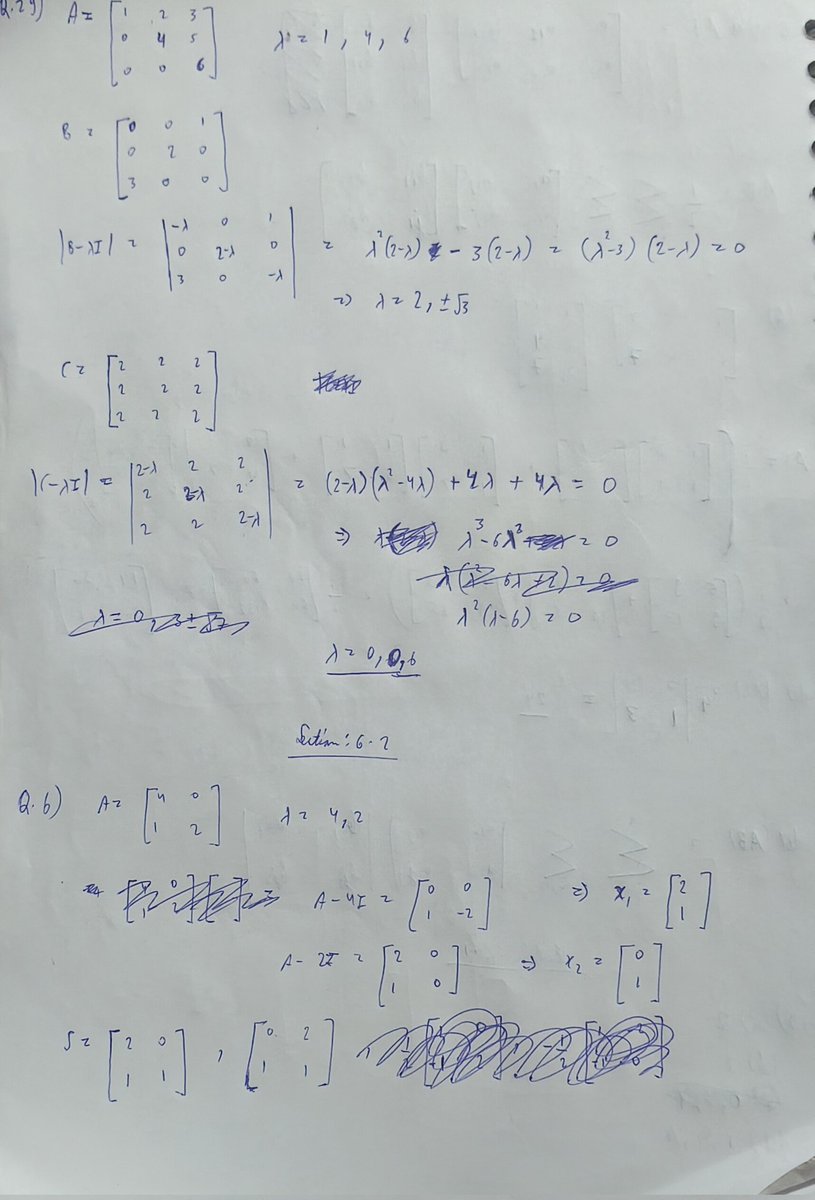 Q.29) A = [1 2 3; 0 4 5; 0 0 6] λ = 1, 4, 6
B = [0 0 1; 0 2 0; 3 0 0]
|B-λI| = |-λ 0 1; 0 2-λ 0; 3 0 -λ| = λ²(2-λ) - 3(2-λ) = (λ²-3)(2-λ) = 0
=> λ = 2, ±√3
C = [2 2 2; 2 2 2; 2 2 2]
|C-λI| = |2-λ 2 2; 2 2-λ 2; 2 2 2-λ| = (2-λ)(λ²-4λ) + 4λ + 4λ = 0
=> λ³-6λ² = 0
λ²(λ-6) = 0
λ = 0, 0, 6
Section: 6.2
Q.6) A = [4 0; 1 2] λ = 4, 2
A-4I = [0 0; 1 -2] => x₁ = [2; 1]
A-2I = [2 0; 1 0] => x₂ = [0; 1]
S = [2 0; 1 1], [0 2; 1 1]